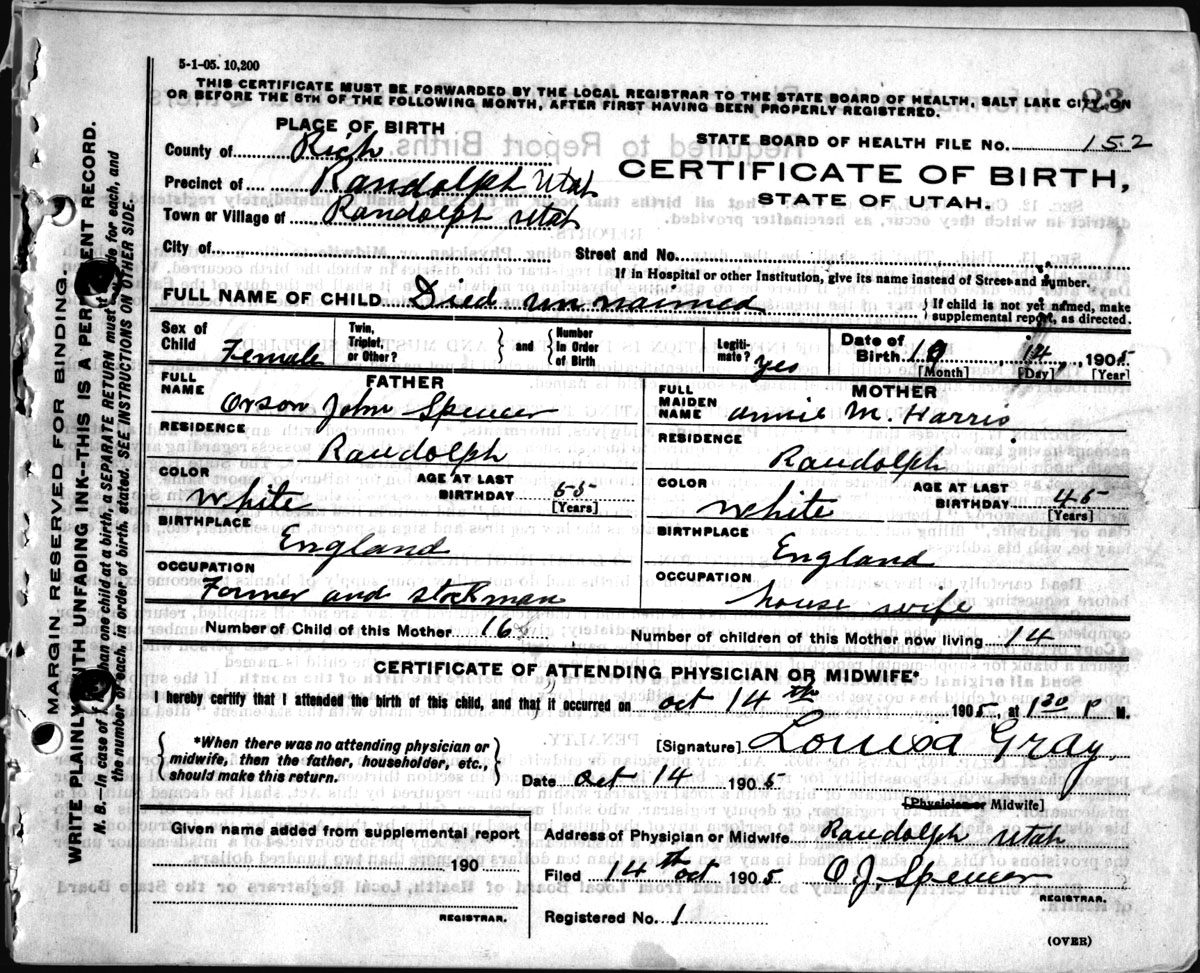 5-1-05. 10,200
THIS CERTIFICATE MUST BE FORWARDED BY THE LOCAL REGISTRAR TO THE STATE BOARD OF HEALTH, SALT LAKE CITY, ON
OR BEFORE THE 5TH OF THE FOLLOWING MONTH, AFTER FIRST HAVING BEEN PROPERLY REGISTERED.
23
PLACE OF BIRTH
STATE BOARD OF HEALTH FILE No. 152
County of Rich
CERTIFICATE OF BIRTH,
Precinct of Randolph Utah
STATE OF UTAH.
Town or Village of Randolph Utah
City of Street and No.
If in Hospital or other Institution, give its name instead of Street and Number.
FULL NAME OF CHILD Died un naimed
{ If child is not yet named, make
supplemental report, as directed.
Sex of Child Female
Twin, Triplet, or Other? } and { Number In Order of Birth
Legiti-mate? yes
Date of Birth 10 14 1905
[Month] [Day] [Year]
FATHER
FULL NAME Orson John Spencer
RESIDENCE
Randolph
COLOR White AGE AT LAST BIRTHDAY 55
[Years]
BIRTHPLACE
England
OCCUPATION
Former and stockman
MOTHER
FULL MAIDEN NAME annie M. Harris
RESIDENCE
Randolph
COLOR White AGE AT LAST BIRTHDAY 45
[Years]
BIRTHPLACE
England
OCCUPATION
house wife
Number of Child of this Mother 16 Number of children of this Mother now living 14
CERTIFICATE OF ATTENDING PHYSICIAN OR MIDWIFE*
I hereby certify that I attended the birth of this child, and that it occurred on oct 14th 1905, at 1 30 P M.
{ *When there was no attending physician or
midwife, then the father, householder, etc.,
should make this return. }
[Signature] Louisa Gray
Date oct 14 1905
[Physician or Midwife]
Given name added from supplemental report
190
REGISTRAR.
Address of Physician or Midwife Randolph Utah
Filed 14th oct 1905 O. J. Spencer
REGISTRAR.
Registered No. 1
(OVER)
MARGIN RESERVED FOR BINDING
WRITE PLAINLY WITH UNFADING INK--THIS IS A PERMANENT RECORD.
N. B.--In case of than one child at a birth, a SEPARATE RETURN must made for each, and
the number of each, in order of birth, stated. SEE INSTRUCTIONS ON OTHER SIDE.